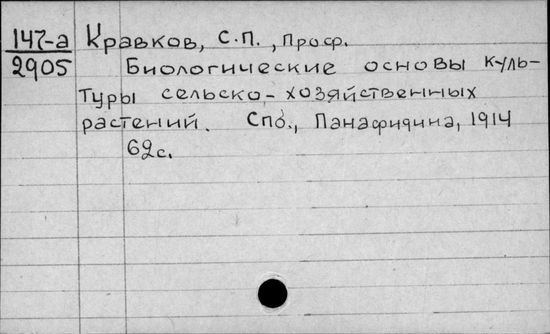 147-а Кравков, С.П., Проф.
2905 Биологические основы куль-
туры сельско-хозяйственных
растений. Спб., Панафидина, 1914
62с.